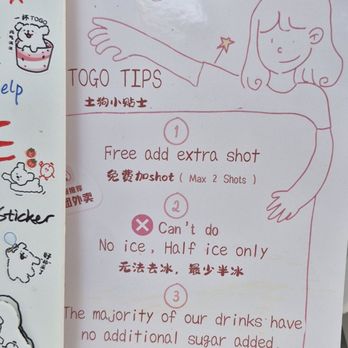 一杯TOGO
elp
Sticker
TOGO TIPS
土狗小贴士
1
Free add extra shot
免费加shot ( Max 2 Shots )
2
Can't do
No ice, Half ice only
无法去冰，最少半冰
3
The majority of our drinks have
no additional sugar added